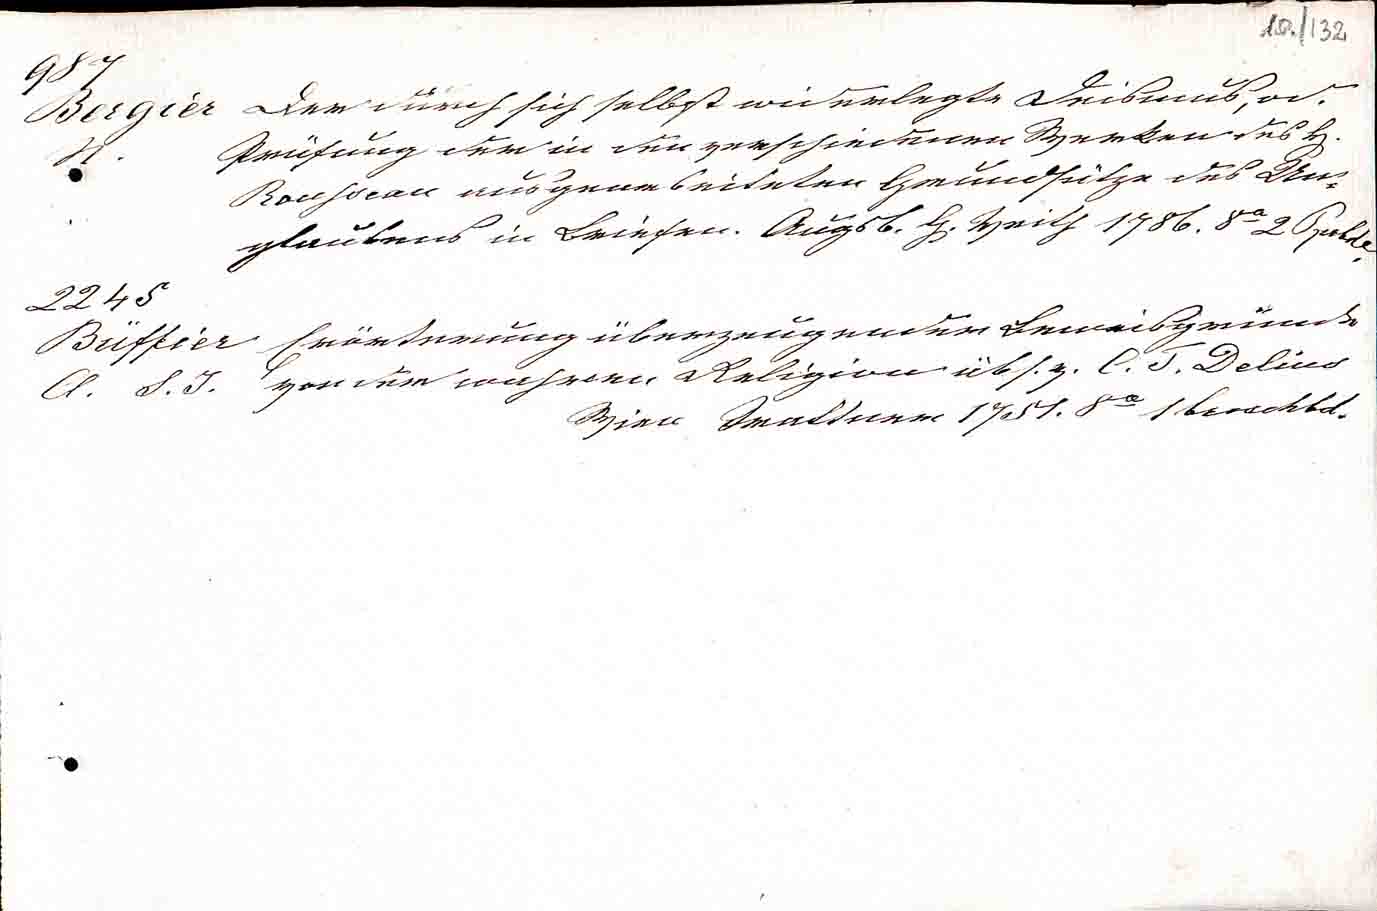 10./132
987
Bergier Der durch sich selbst widerlegte Deismus, od.
N. Prüfung der in den verschiedenen Werken des H.
Rousseau ausgearbeiteten Grundsätze des Un-
glaubens in Briefen. Augsb. H. Veith 1786. 8° 2
2245
Büffier Erörterung überzeugender Beweisgründe
Cl. S.J. von der wahren Religion übs. v. C. T. Delius
Wien Trattner 1751. 8°